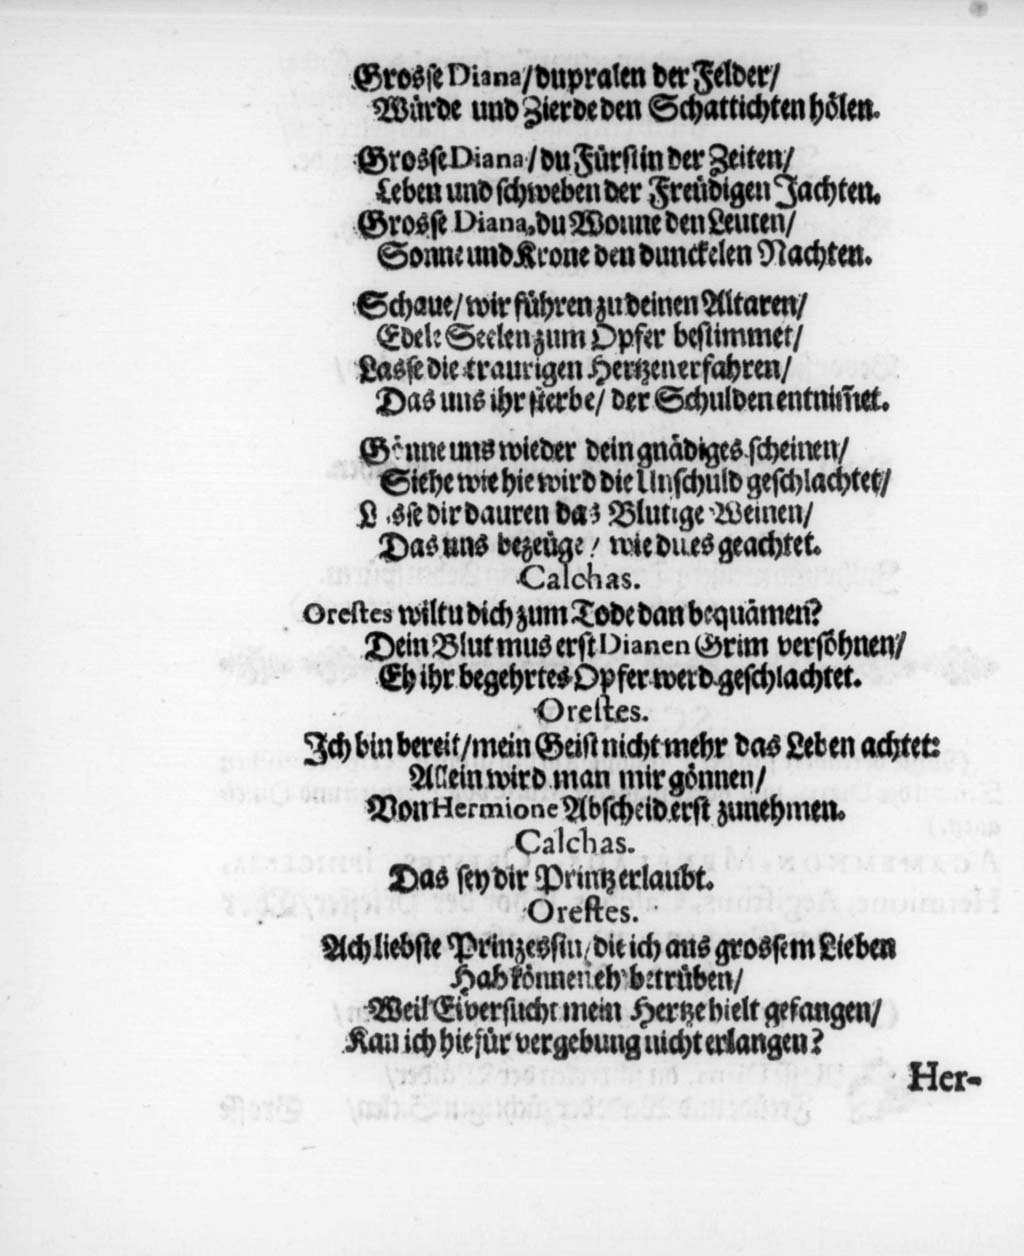 Grosse Diana/du pralen der Felder/
Würde und Zierde den Schattichten hölen.
Grosse Diana/du Fürstin der Zeiten/
Leben und schweben der Freüdigen Jachten.
Grosse Diana, du Wonne den Leuten/
Sonne und Krone den dunckelen Nachten.
Schaue/wir führen zu deinen Altaren/
Edele Seelen zum Opfer bestimmet/
Lasse die traurigen Hertzen erfahren/
Das uns ihr sterbe/ der Schulden entnim̃et.
Gönne uns wieder dein gnädiges scheinen/
Siehe wie hie wird die Unschuld geschlachtet/
Lasse dir dauren das Blutige Weinen/
Das uns bezeüge/ wie du es geachtet.
Calchas.
Orestes wiltu dich zum Tode dan bequämen?
Dein Blut mus erst Dianen Grim versöhnen/
Eh ihr begehrtes Opfer werd geschlachtet.
Orestes.
Ich bin bereit/mein Geist nicht mehr das Leben achtet:
Allein wird man mir gönnen/
Von Hermione Abscheid erst zunehmen.
Calchas.
Das sey dir Printz erlaubt.
Orestes.
Ach liebste Prinzessin/die ich aus grossem Lieben
Hab können eh betrüben/
Weil Eiversucht mein Hertze hielt gefangen/
Kan ich hiefür vergebung nicht erlangen?
Her-